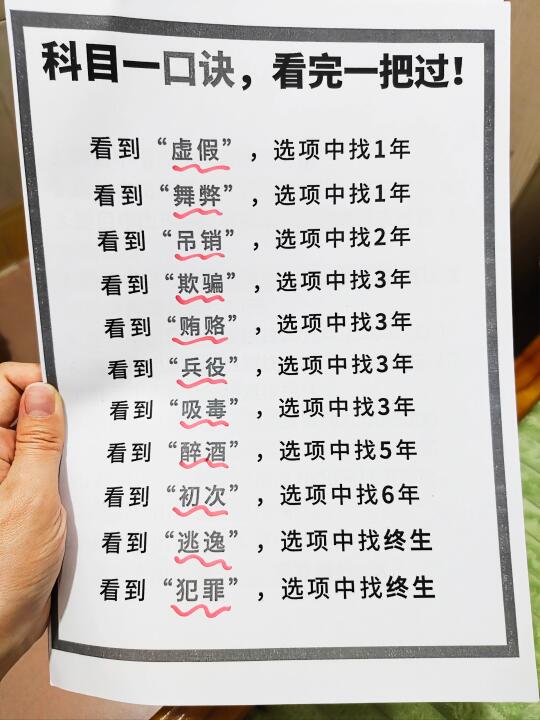 科目一口诀，看完一把过！
看到“虚假”，选项中找1年
看到“舞弊”，选项中找1年
看到“吊销”，选项中找2年
看到“欺骗”，选项中找3年
看到“贿赂”，选项中找3年
看到“兵役”，选项中找3年
看到“吸毒”，选项中找3年
看到“醉酒”，选项中找5年
看到“初次”，选项中找6年
看到“逃逸”，选项中找终生
看到“犯罪”，选项中找终生